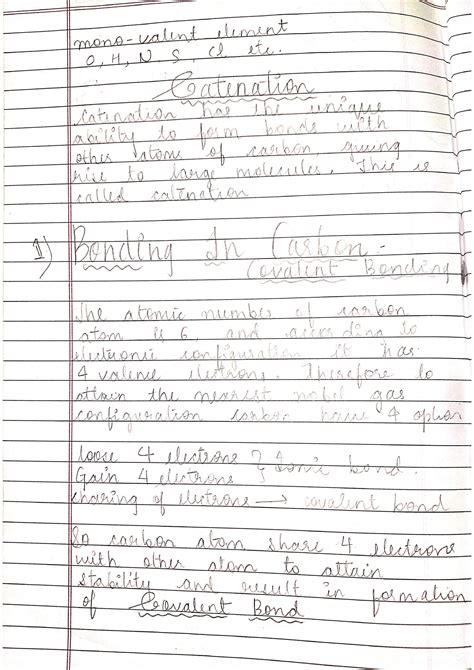 mono-valent element
O, H, N, S, Cl etc.
Catenation
Catenation has the unique
ability to form bonds with
other atoms of carbon giving
rise to large molecules. This is
called catenation
1) Bonding In Carbon -
Covalent Bonding
The atomic number of carbon
atom is 6, and according to
electronic configuration it has
4 valence electrons. Therefore to
attain the nearest nobel gas
configuration carbon have 4 option
loose 4 electrons } Ionic bond.
Gain 4 electrons
sharing of electrons → covalent bond
So carbon atom share 4 electrons
with other atom to attain
stability and result in formation
of Covalent Bond